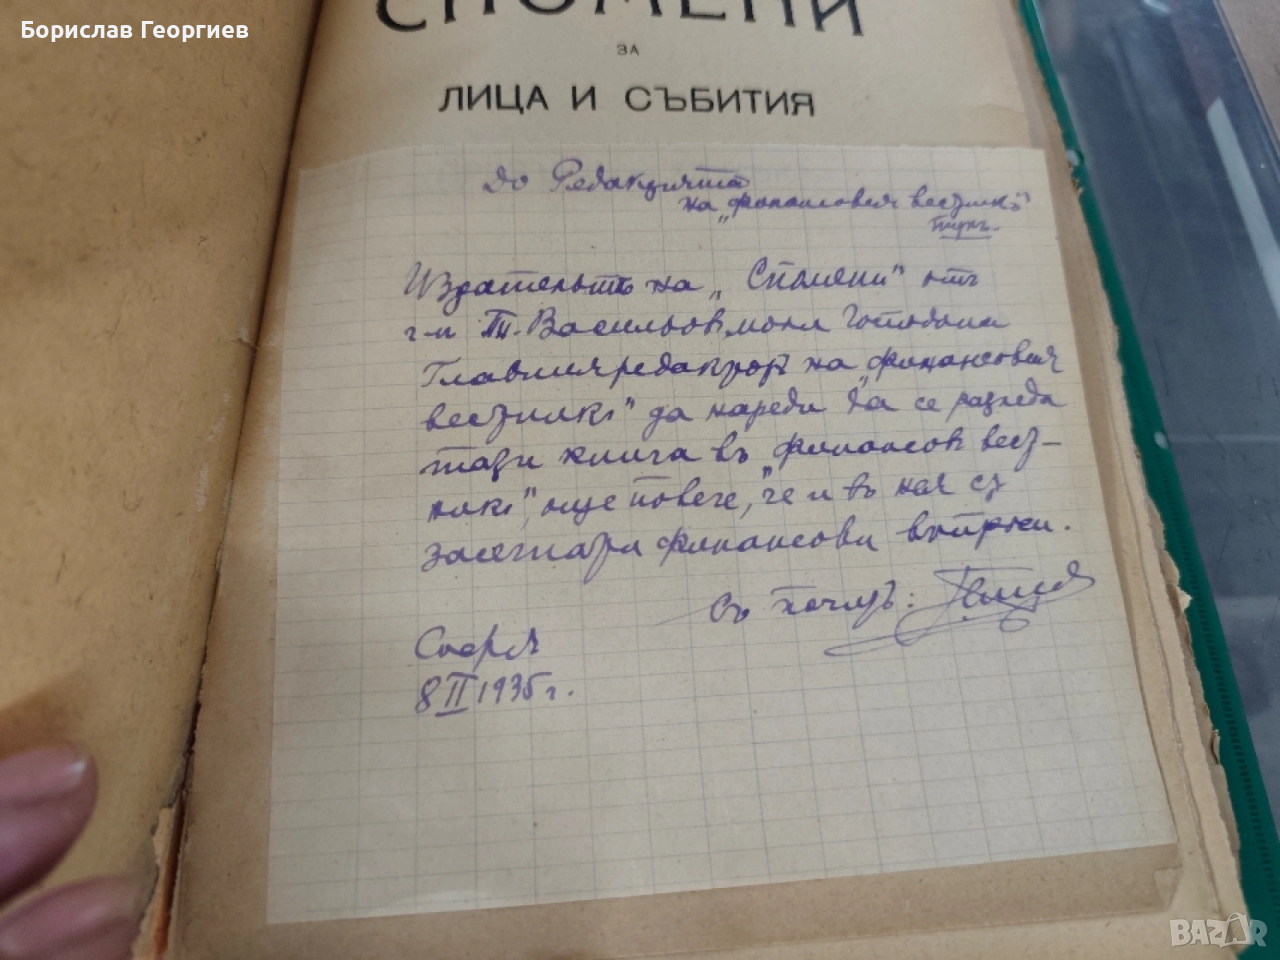 Борислав Георгиев
СПОМЕНИ
ЗА
ЛИЦА И СЪБИТИЯ
До Редакцията
на „Финансовия вестникъ"
тукъ.
Издательтъ на „Спомени" отъ
г-н Т. Васильовъ, моли Господина
Главния редакторъ на „Финансовия
вестникъ" да нареди да се разгледа
тази книга въ „Финансовъ вест-
никъ", още повече, че и въ нея са
засегнати финансови въпроси.
Съ почитъ:
София
8 II 1935 г.
BAZAR